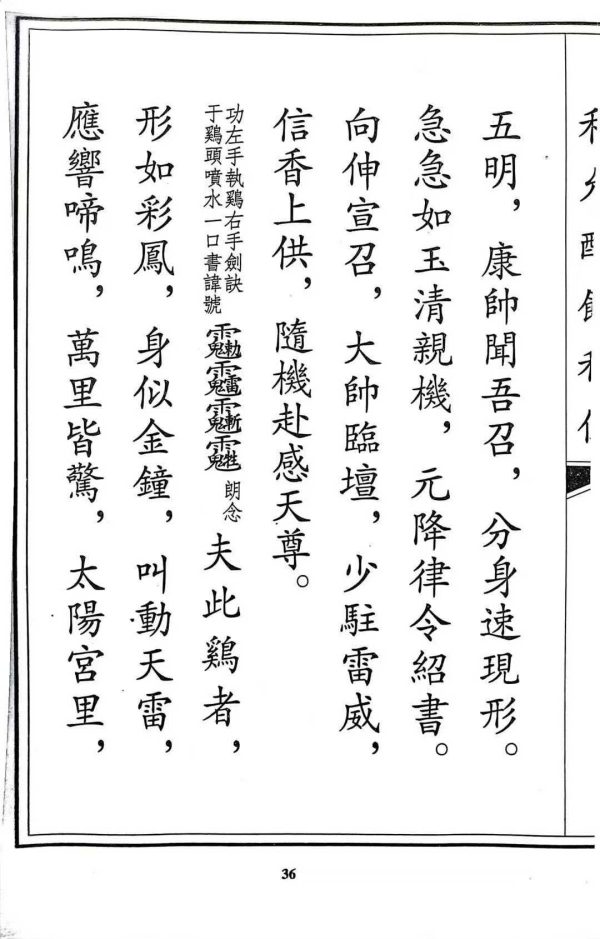 五明，康帥聞吾召，分身速現形。
急急如玉清親機，元降律令紹書。
向伸宣召，大帥臨壇，少駐雷威，
信香上供，隨機赴感天尊。
功左手執鷄右手劍訣
于鷄頭噴水一口書諱號
朗念
夫此鷄者，
形如彩鳳，身似金鐘，叫動天雷，
應響啼鳴，萬里皆驚，太陽宮里，
36